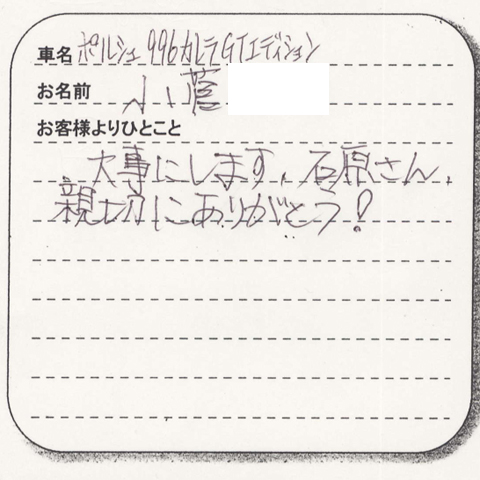 車名 ポルシェ996カレラGTエディション
お名前 小菅
お客様よりひとこと
大事にします、石原さん、
親切にありがとう!